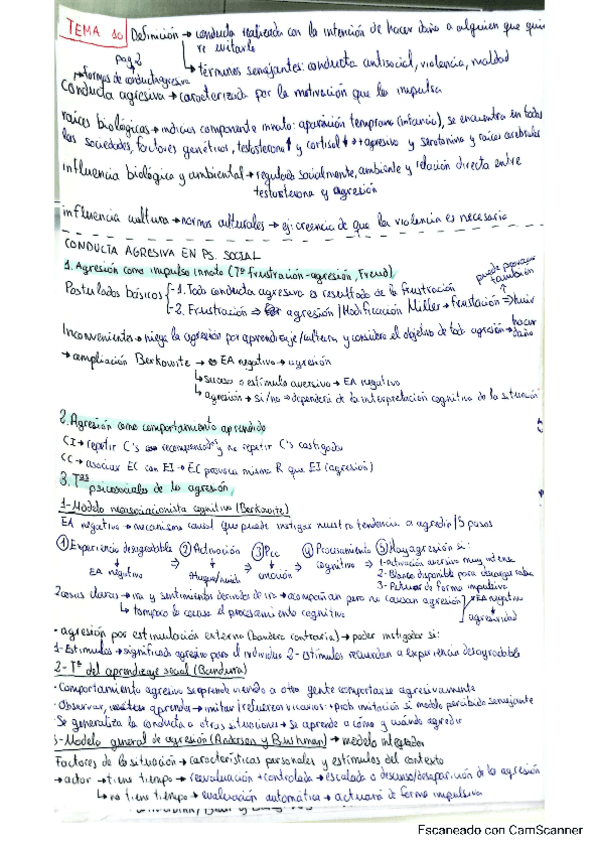 TEMA 10 Definición → conducta realizada con la intención de hacer daño a alguien que quie
re evitarlo
pag 2 → términos semejantes: conducta antisocial, violencia, maldad
→ formas de conducta agresiva
conducta agresiva → caracterizada por la motivación que la impulsa
raíces biológicas → indicios componente innato: aparición temprana (infancia), se encuentra en todas
las sociedades, factores genéticos, testosterona ↑ y cortisol ↓ → + agresivo y serotonina y raíces cerebrales
influencia biológica y ambiental → regulares socialmente, ambiente y relación directa entre
testosterona y agresión
influencia cultura → normas culturales → ej: creencia de que la violencia es necesaria
CONDUCTA AGRESIVA EN PS. SOCIAL
1. Agresión como impulso innato (Tª frustración-agresión, Freud)
puede provocar
también
Postulados básicos - 1. Toda conducta agresiva es resultado de la frustración
- 2. Frustración ⇒ agresión | Modificación Miller → frustación ⇒ huir
Inconvenientes → niega la agresión por aprendizaje/cultura y considera el objetivo de toda agresión → hacer
daño
→ ampliación Berkowitz → EA negativo → agresión
↳ suceso o estímulo aversivo → EA negativo
↳ agresión → si/no → dependerá de la interpretación cognitiva de la situación
2. Agresión como comportamiento aprendido
CI → repetir C's recompensadas y no repetir C's castigadas
CC → asociar EC con EI → EC provoca misma R que EI (agresión)
3. Tªs psicosociales de la agresión
1- Modelo neoasociacionista cognitivo (Berkowitz)
EA negativo → mecanismo causal que puede instigar nuestra tendencia a agredir / 5 pasos
① Experiencia desagradable ② Activación ③ Pcc ④ Procesamiento ⑤ Hay agresión si:
↓ EA negativo ⇒ ↓ Huega/huida ⇒ ↓ emoción ⇒ cognitivo ⇒ 1- Activación aversiva muy intensa
2- Blanco disponible para descargar
3- Actuar de forma impulsiva
2 cosas claras → ira y sentimientos derivados de ira → acompañan pero no causan agresión / EA negativo
↳ tampoco la causa el procesamiento cognitivo ↓ agresividad
· agresión por estimulación externa (bandera contraria) → poder instigador si:
1- Estímulos → significado agresivo para el individuo 2- estímulos recuerdan a experiencia desagradable
2- Tª del aprendizaje social (Bandura)
· Comportamiento agresivo se aprende viendo a otra gente comportarse agresivamente
· Observar, aprender → imitar / refuerzo vicario: + prob imitación si modelo percibido semejante
· Se generaliza la conducta a otras situaciones → Se aprende a cómo y cuándo agredir
3- Modelo general de agresión (Anderson y Bushman) → modelo integrador
Factores de la situación → características personales y estímulos del contexto
→ actor → tiene tiempo → reevaluación + controlada → escalada o descenso/desaparición de la agresión
↳ no tiene tiempo → evaluación automática → actuará de forma impulsiva
Escaneado con CamScanner